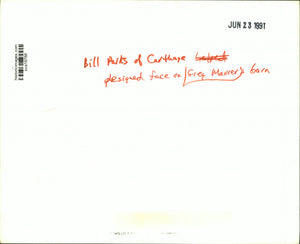 JUN 23 1991
Bill Parks of Carthage helped
designed face on Greg Maurer's barn